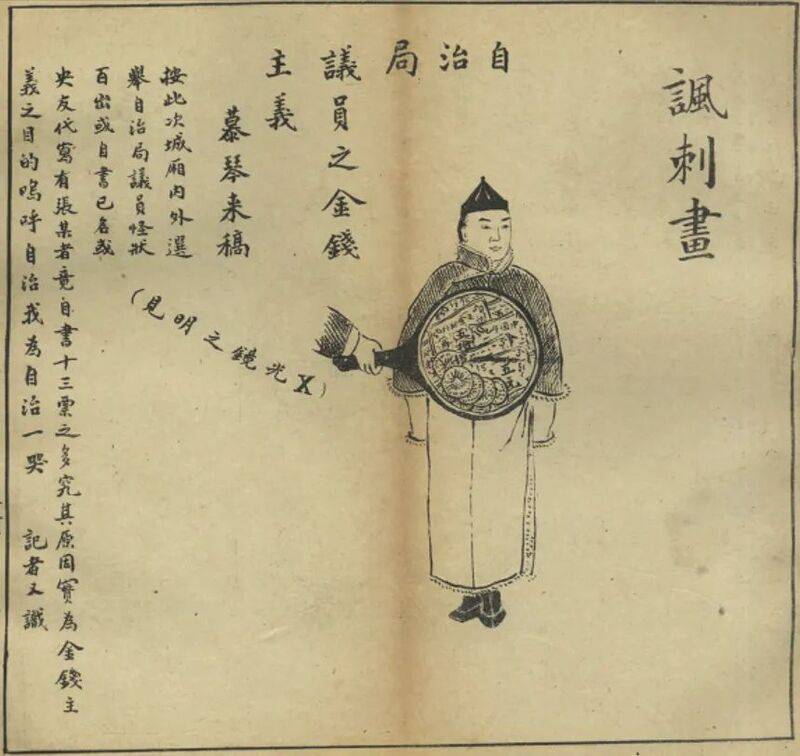 諷刺畫
自治局
議員之金錢
主義
慕琴来稿
按此次城廂内外選
舉自治局議員怪狀
百出或自書已名或
央友代寫有張某者竟自書十三票之多究其原因實為金錢主
義之目的嗚呼自治我為自治一哭 記者又識
(X光鏡之明見)